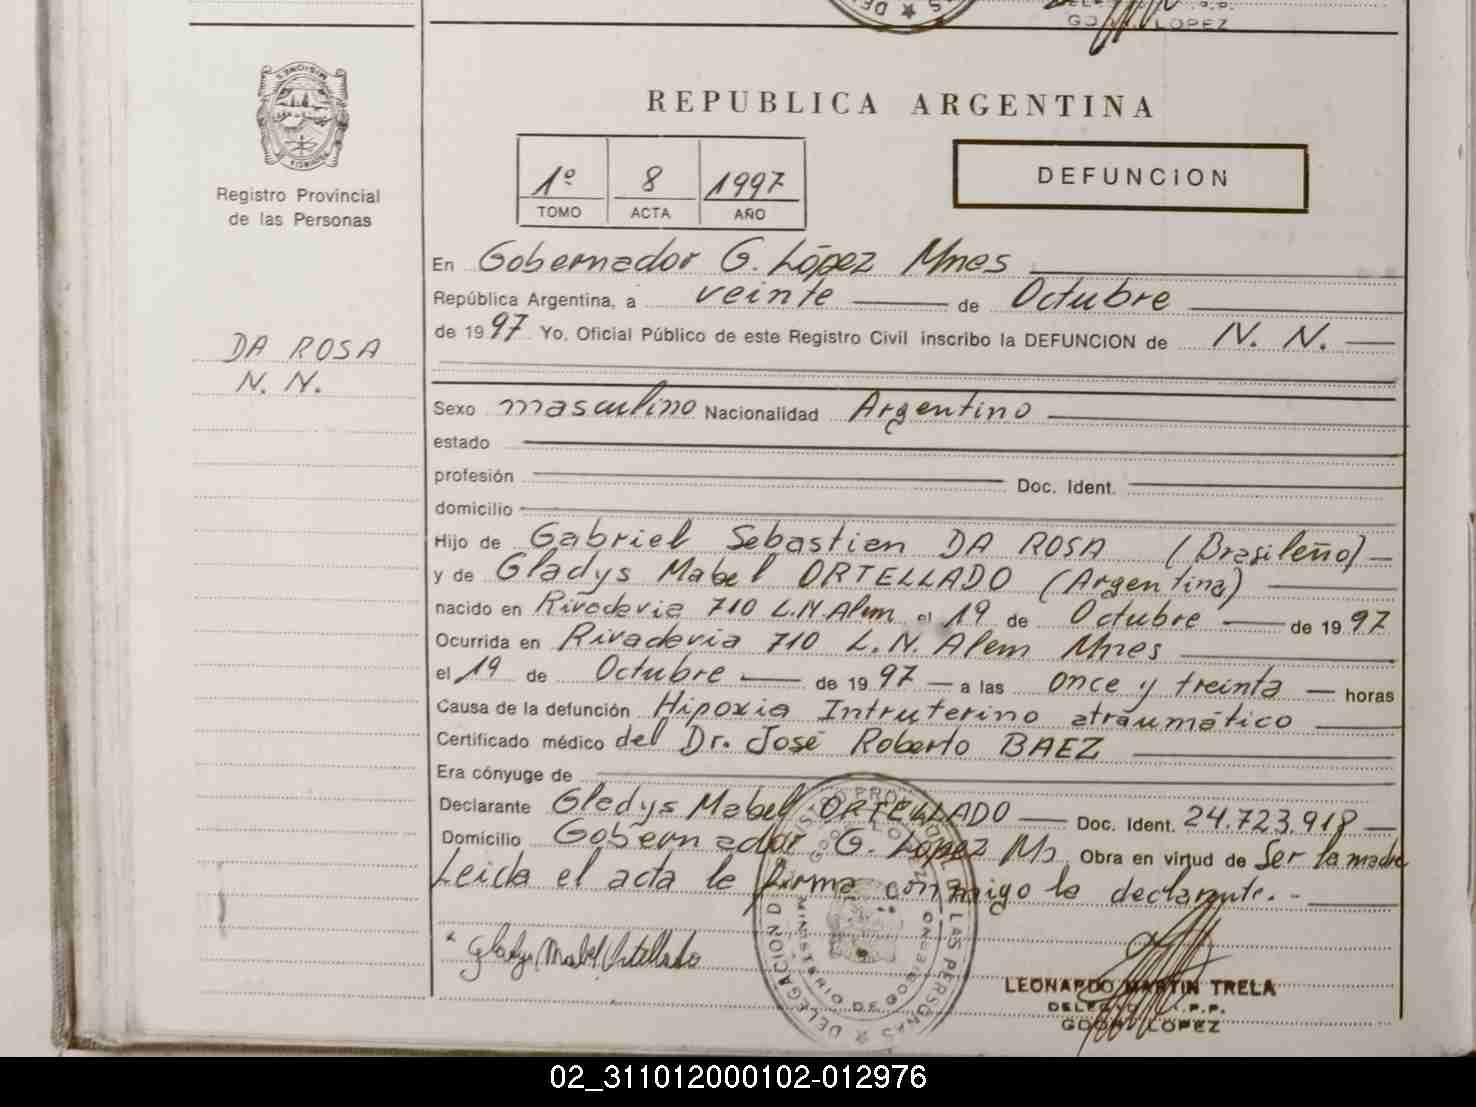 GDOR. LOPEZ
MISIONES
Registro Provincial
de las Personas
DA ROSA
N. N.
REPUBLICA ARGENTINA
1º 8 1997
TOMO ACTA AÑO
DEFUNCION
En Gobernador G. López Mnes
República Argentina, a veinte de Octubre
de 1997 Yo, Oficial Público de este Registro Civil inscribo la DEFUNCION de N. N.
Sexo masculino Nacionalidad Argentino
estado
profesión Doc. Ident.
domicilio
Hijo de Gabriel Sebastien DA ROSA (Brasileño)
y de Gladys Mabel ORTELLADO (Argentina)
nacido en Rivadavia 710 L.N.Alem el 19 de Octubre de 1997
Ocurrida en Rivadavia 710 L.N. Alem Mnes
el 19 de Octubre de 1997 a las once y treinta horas
Causa de la defunción Hipoxia Intruterino atraumático
Certificado médico del Dr. José Roberto BAEZ
Era cónyuge de
Declarante Gladys Mabel ORTELLADO Doc. Ident. 24.723.918
Domicilio Gobernador G. López Ms Obra en virtud de Ser la madre
Leida el acta le firma conmigo la declarante. -
Gladys Mabel Ortellado
DELEGACION MINISTERIO DE GOBIERNO DE LAS PERSONAS
LEONARDO MARTIN TRELA
GDOR. LOPEZ
02_311012000102-012976